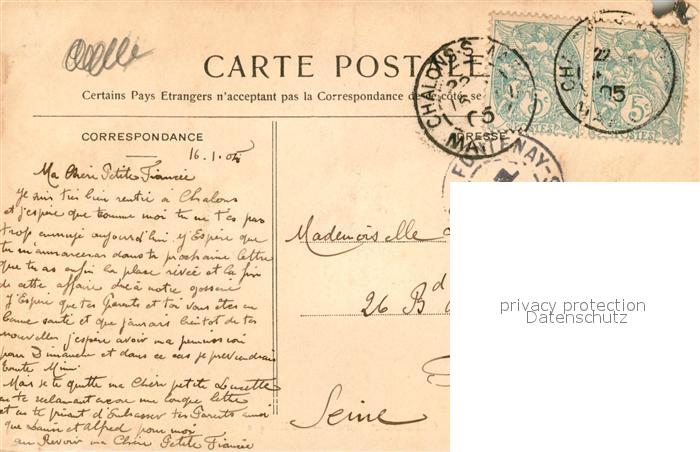 CARTE POSTALE
Certains Pays Etrangers n'acceptant pas la Correspondance de ce côté, se
CORRESPONDANCE
ADRESSE
16.1.05
Ma Chère Petite Fiancée
Je suis très bien rentré à Chalons
et j'espère que comme moi tu ne t'es pas
trop ennuyé aujourd'hui. J'Espère que
tu m'annonceras dans ta prochaine lettre
que tu as enfin la place rêvée et la fin
de cette affaire à notre
J'Espère que tes Parents et toi vous êtes en
bonne santé et que j'aurais bientôt de tes
nouvelles j'espère avoir ma permission
pour Dimanche et dans ce cas je préviendrais
toute Mimi
Mais je te quitte ma Chère petite Lucette
en te réclamant encore une longue lettre
et en te priant d'Embrasser tes Parents ainsi
que Louis et Alfred pour moi
au Revoir ma Chère Petite Fiancée
Mademoiselle
26 Bd
Seine
CHALONS-S
22
05
MARNE
FONTENAY-S
5c
POSTES
5c
POSTES
privacy protection
Datenschutz